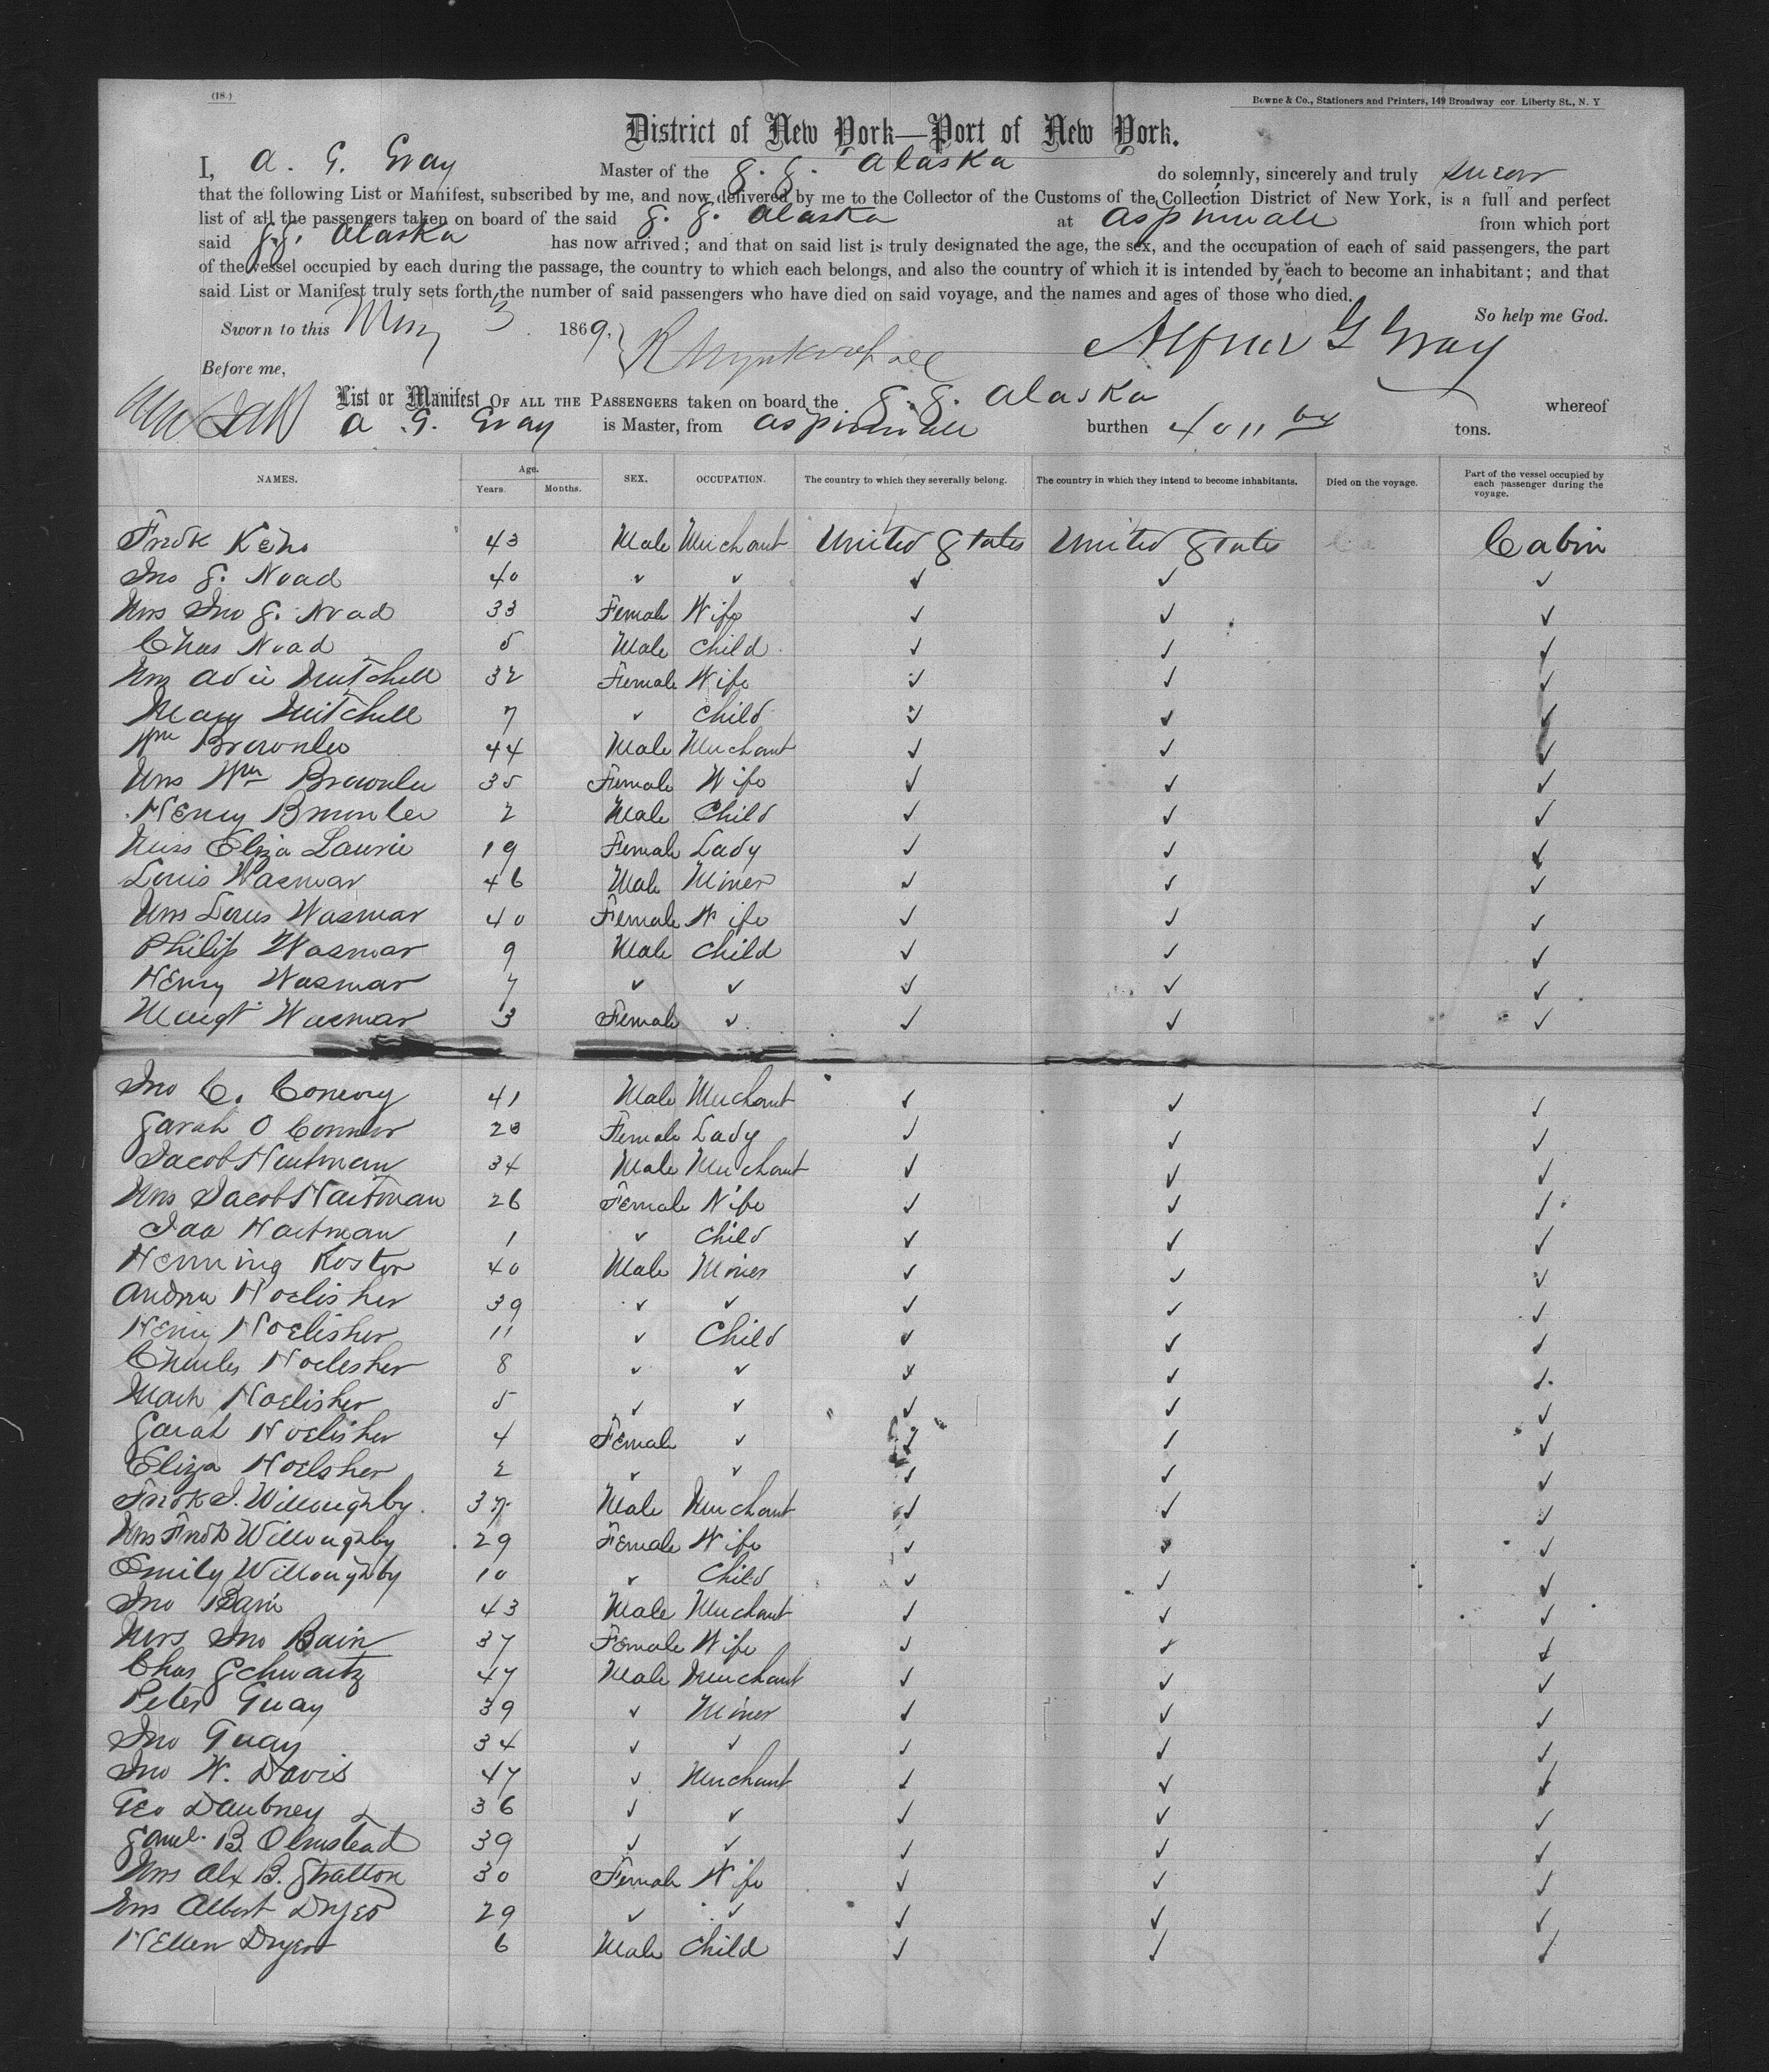 (18.)
Bowne & Co., Stationers and Printers, 149 Broadway cor. Liberty St., N. Y
District of New York—Port of New York.
I, A. G. Gray Master of the S. S. Alaska do solemnly, sincerely and truly swear
that the following List or Manifest, subscribed by me, and now delivered by me to the Collector of the Customs of the Collection District of New York, is a full and perfect
list of all the passengers taken on board of the said S. S. Alaska at Aspinwall from which port
said S.S. Alaska has now arrived; and that on said list is truly designated the age, the sex, and the occupation of each of said passengers, the part
of the vessel occupied by each during the passage, the country to which each belongs, and also the country of which it is intended by each to become an inhabitant; and that
said List or Manifest truly sets forth the number of said passengers who have died on said voyage, and the names and ages of those who died.
So help me God.
Sworn to this May 3 1869. Alfred G Gray
Before me,
List or Manifest OF ALL THE PASSENGERS taken on board the S. S. Alaska whereof
A. G. Gray is Master, from Aspinwall burthen 4011 tons.
NAMES. Age. Years. Months. SEX. OCCUPATION. The country to which they severally belong. The country in which they intend to become inhabitants. Died on the voyage. Part of the vessel occupied by each passenger during the voyage.
Fredk 43 Male Merchant United States United States Cabin
Jno S. Noad 40 ✓ ✓ ✓ ✓ ✓
Mrs Jno S. Noad 33 Female Wife ✓ ✓ ✓
Chas Noad 5 Male Child ✓ ✓ ✓
Mrs Adie Mitchell 32 Female Wife ✓ ✓ ✓
Mary Mitchell 7 ✓ Child ✓ ✓ ✓
Wm Brownlee 44 Male Merchant ✓ ✓ ✓
Mrs Wm Brownlee 35 Female Wife ✓ ✓ ✓
Henry Brownlee 2 Male Child ✓ ✓ ✓
Miss Eliza Laurie 19 Female Lady ✓ ✓ ✓
Louis Wasmar 46 Male Miner ✓ ✓ ✓
Mrs Louis Wasmar 40 Female Wife ✓ ✓ ✓
Philip Wasmar 9 Male Child ✓ ✓ ✓
Henry Wasmar 7 ✓ ✓ ✓ ✓ ✓
Margt Wasmar 3 Female ✓ ✓ ✓ ✓
Jno C. 41 Male Merchant ✓ ✓ ✓
Sarah O Connor 23 Female Lady ✓ ✓ ✓
Jacob Hartman 34 Male Merchant ✓ ✓ ✓
Mrs Jacob Hartman 26 Female Wife ✓ ✓ ✓
Ida Hartman 1 ✓ Child ✓ ✓ ✓
Henning Koster 40 Male Miner ✓ ✓ ✓
Andrew Hoelisher 39 ✓ ✓ ✓ ✓ ✓
Henry Hoelisher 11 ✓ Child ✓ ✓ ✓
Charles Hoelisher 8 ✓ ✓ ✓ ✓ ✓
Hoelisher 5 ✓ ✓ ✓ ✓ ✓
Sarah Hoelisher 4 Female ✓ ✓ ✓ ✓
Eliza Hoelsher 2 ✓ ✓ ✓ ✓ ✓
Fredk J. Willoughby 37 Male Merchant ✓ ✓ ✓
Mrs Fredk Willoughby 29 Female Wife ✓ ✓ ✓
Emily Willoughby 10 ✓ Child ✓ ✓ ✓
Jno Bain 43 Male Merchant ✓ ✓ ✓
Mrs Jno Bain 37 Female Wife ✓ ✓ ✓
Chas Schwartz 47 Male Merchant ✓ ✓ ✓
Peter Guay 39 ✓ Miner ✓ ✓ ✓
Jno Guay 34 ✓ ✓ ✓ ✓ ✓
Jno W. Davis 47 ✓ Merchant ✓ ✓ ✓
Geo Daubney 36 ✓ ✓ ✓ ✓ ✓
Saml. B. Olmstead 39 ✓ ✓ ✓ ✓ ✓
Mrs Alx B. Stratton 30 Female Wife ✓ ✓ ✓
Mrs Albert Dryer 29 ✓ ✓ ✓ ✓ ✓
Hellen Dryer 6 Male Child ✓ ✓ ✓